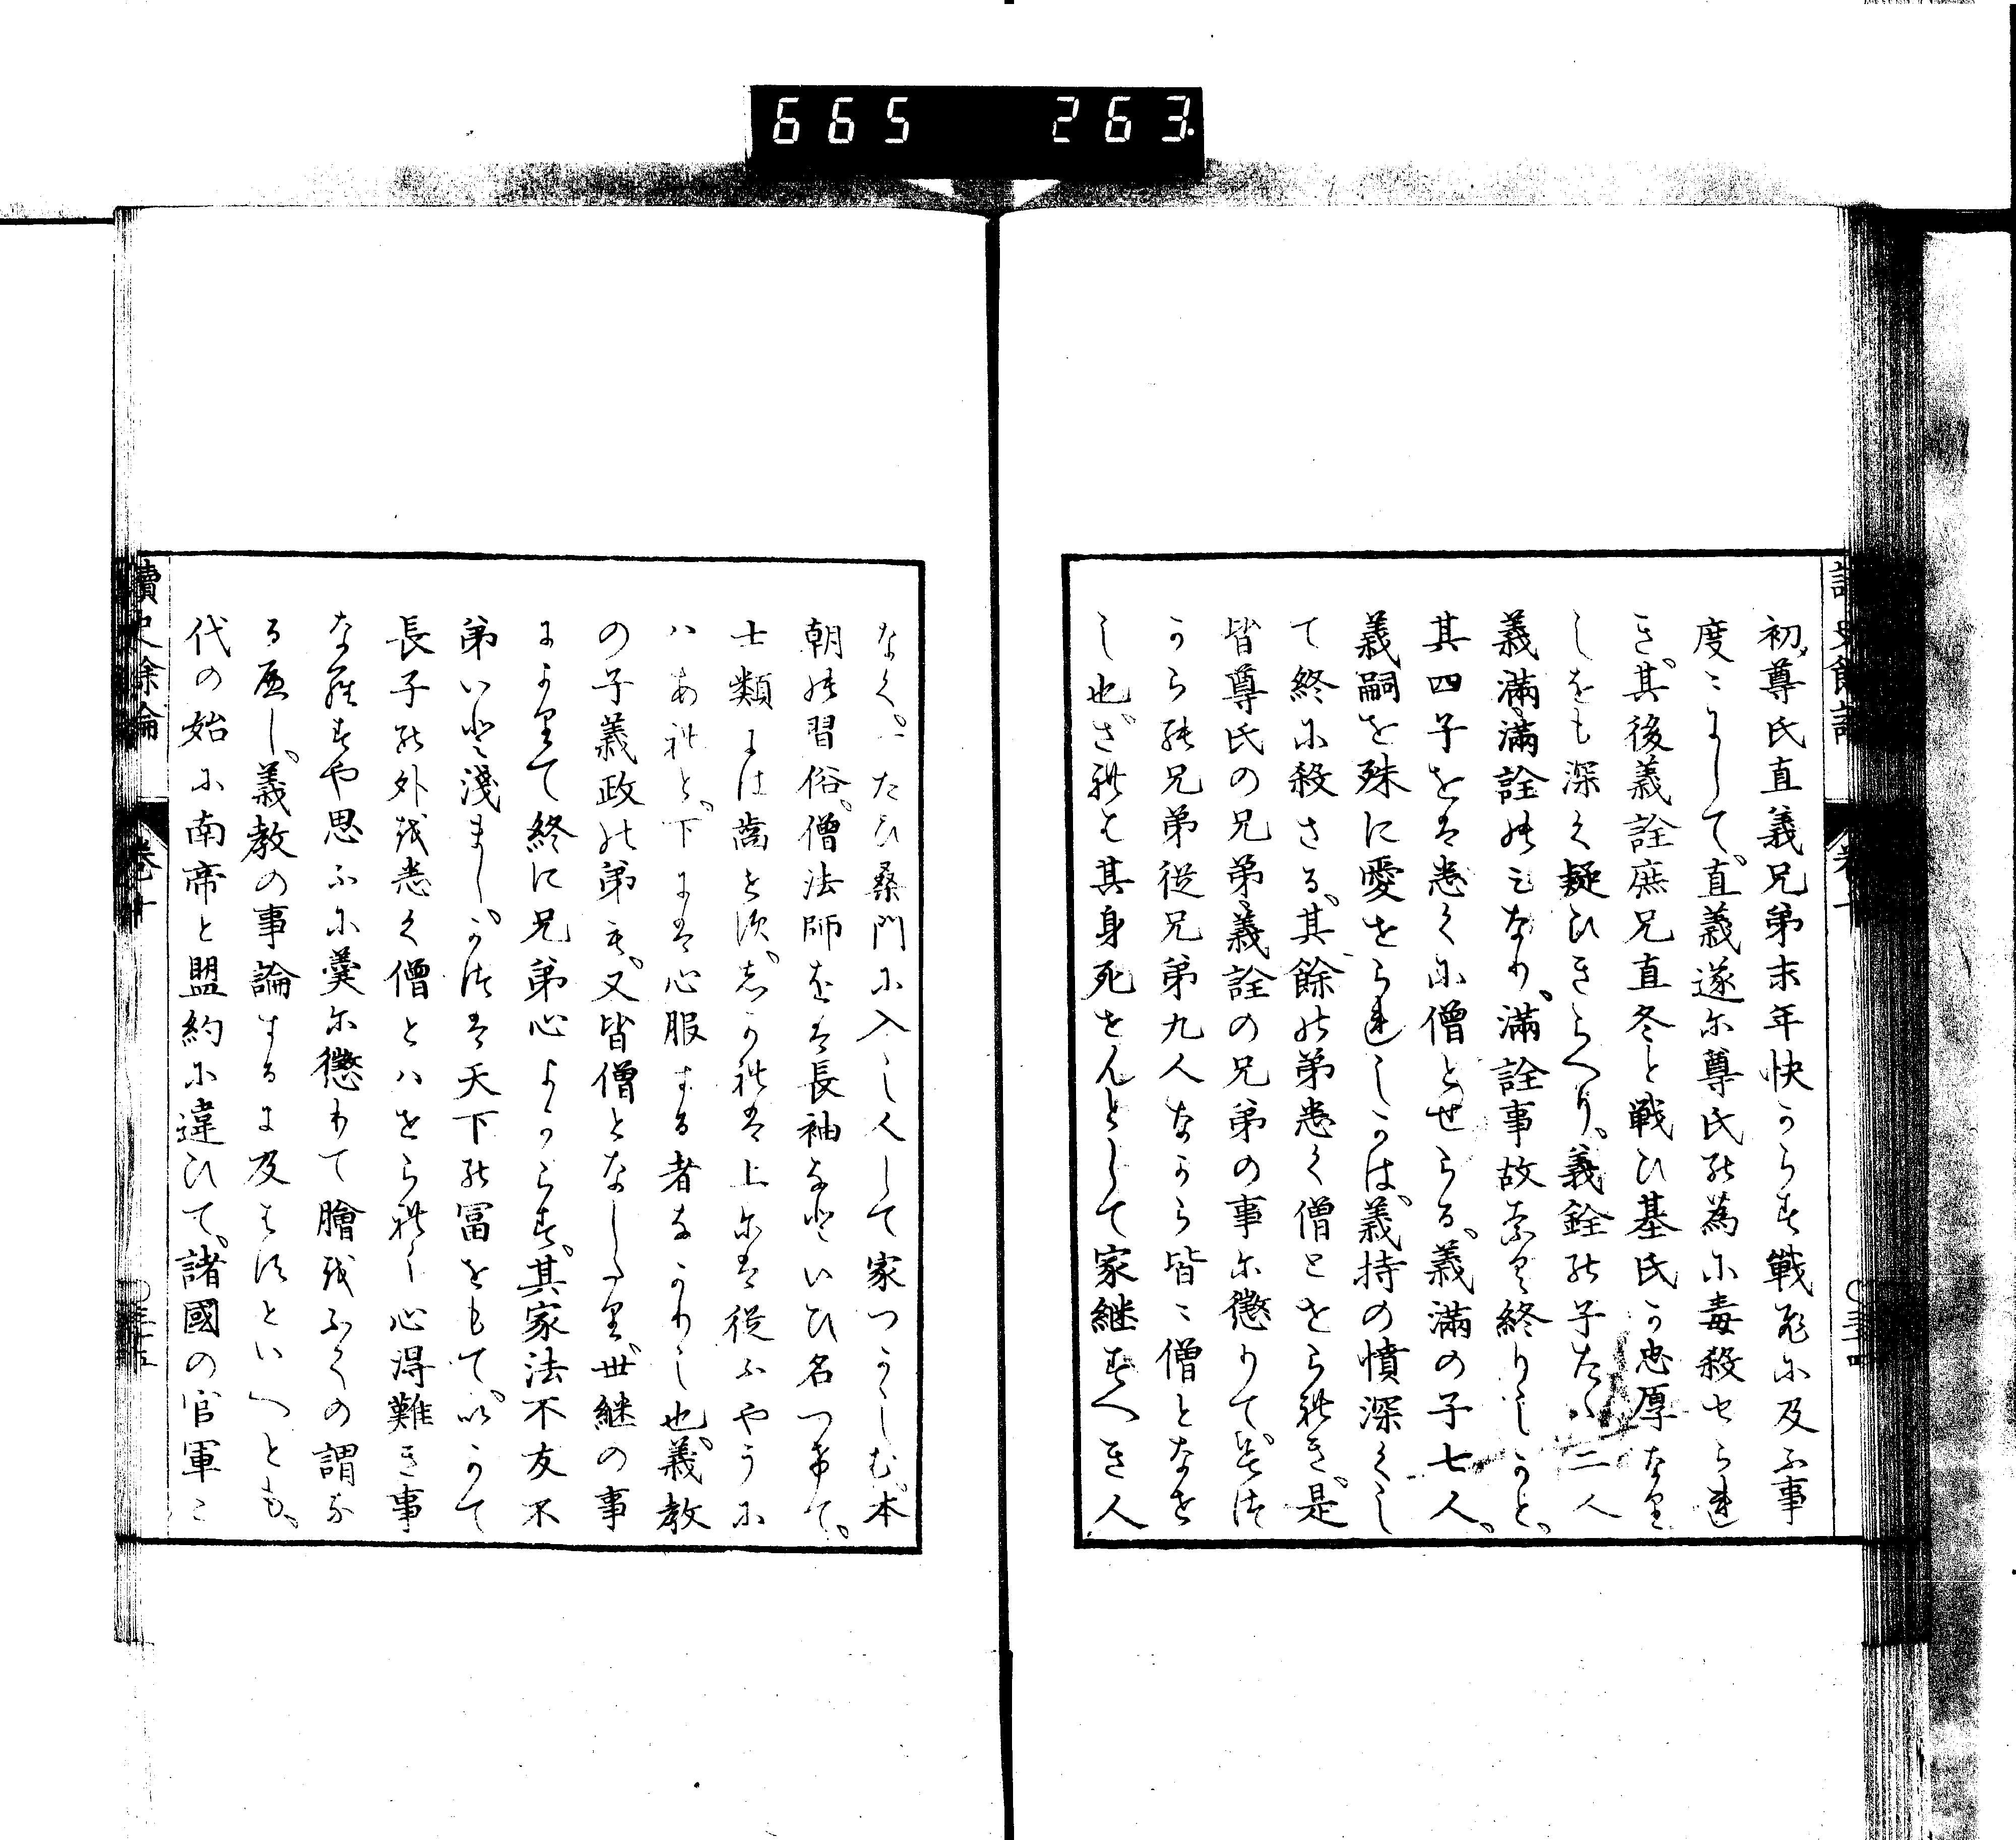 665 263
初尊氏直義兄弟末年快からす戦死に及ふ事
度々にして。直義遂に尊氏の為に毒殺せられ
き。其後義詮庶兄直冬と戦ひ基氏か忠厚なり
しをも深く疑ひきらへり。義銓の子たゝ二人
義満、満詮のミなり。満詮事故なく終りしかと。
其四子をは悉くに僧とせらる。義満の子七人。
義嗣を殊に愛せられしかは。義持の憤深くし
て終に殺さる。其餘の弟悉く僧とせられき。是
皆尊氏の兄弟。義詮の兄弟の事に懲りて。
から、兄弟従兄弟九人なから皆々僧となせ
し也。されは其身死せんとして家継すへき人
なく。一たひ桑門に入し人して家つかしむ。本
朝の習俗。僧法師をは長袖なといひ名つけて。
士類には歯せす。しかれは上には従ふやうに
ハあれと。下には心服する者なかりし也。義教
の子義政の弟も。又皆僧となしたり。世継の事
によりて終に兄弟心よからす。其家法不友不
弟いと淺まし。かつは天下の冨をもて。いかて
長子の外を悉く僧とハせられし心得難き事
ならすや思ふに羹に懲りて膾をふくの謂な
る应し。義教の事論するに及はすといへとも。
代の始に南帝と盟約に違ひて。諸國の官軍こ
讀史餘論 巻十 〇三十五